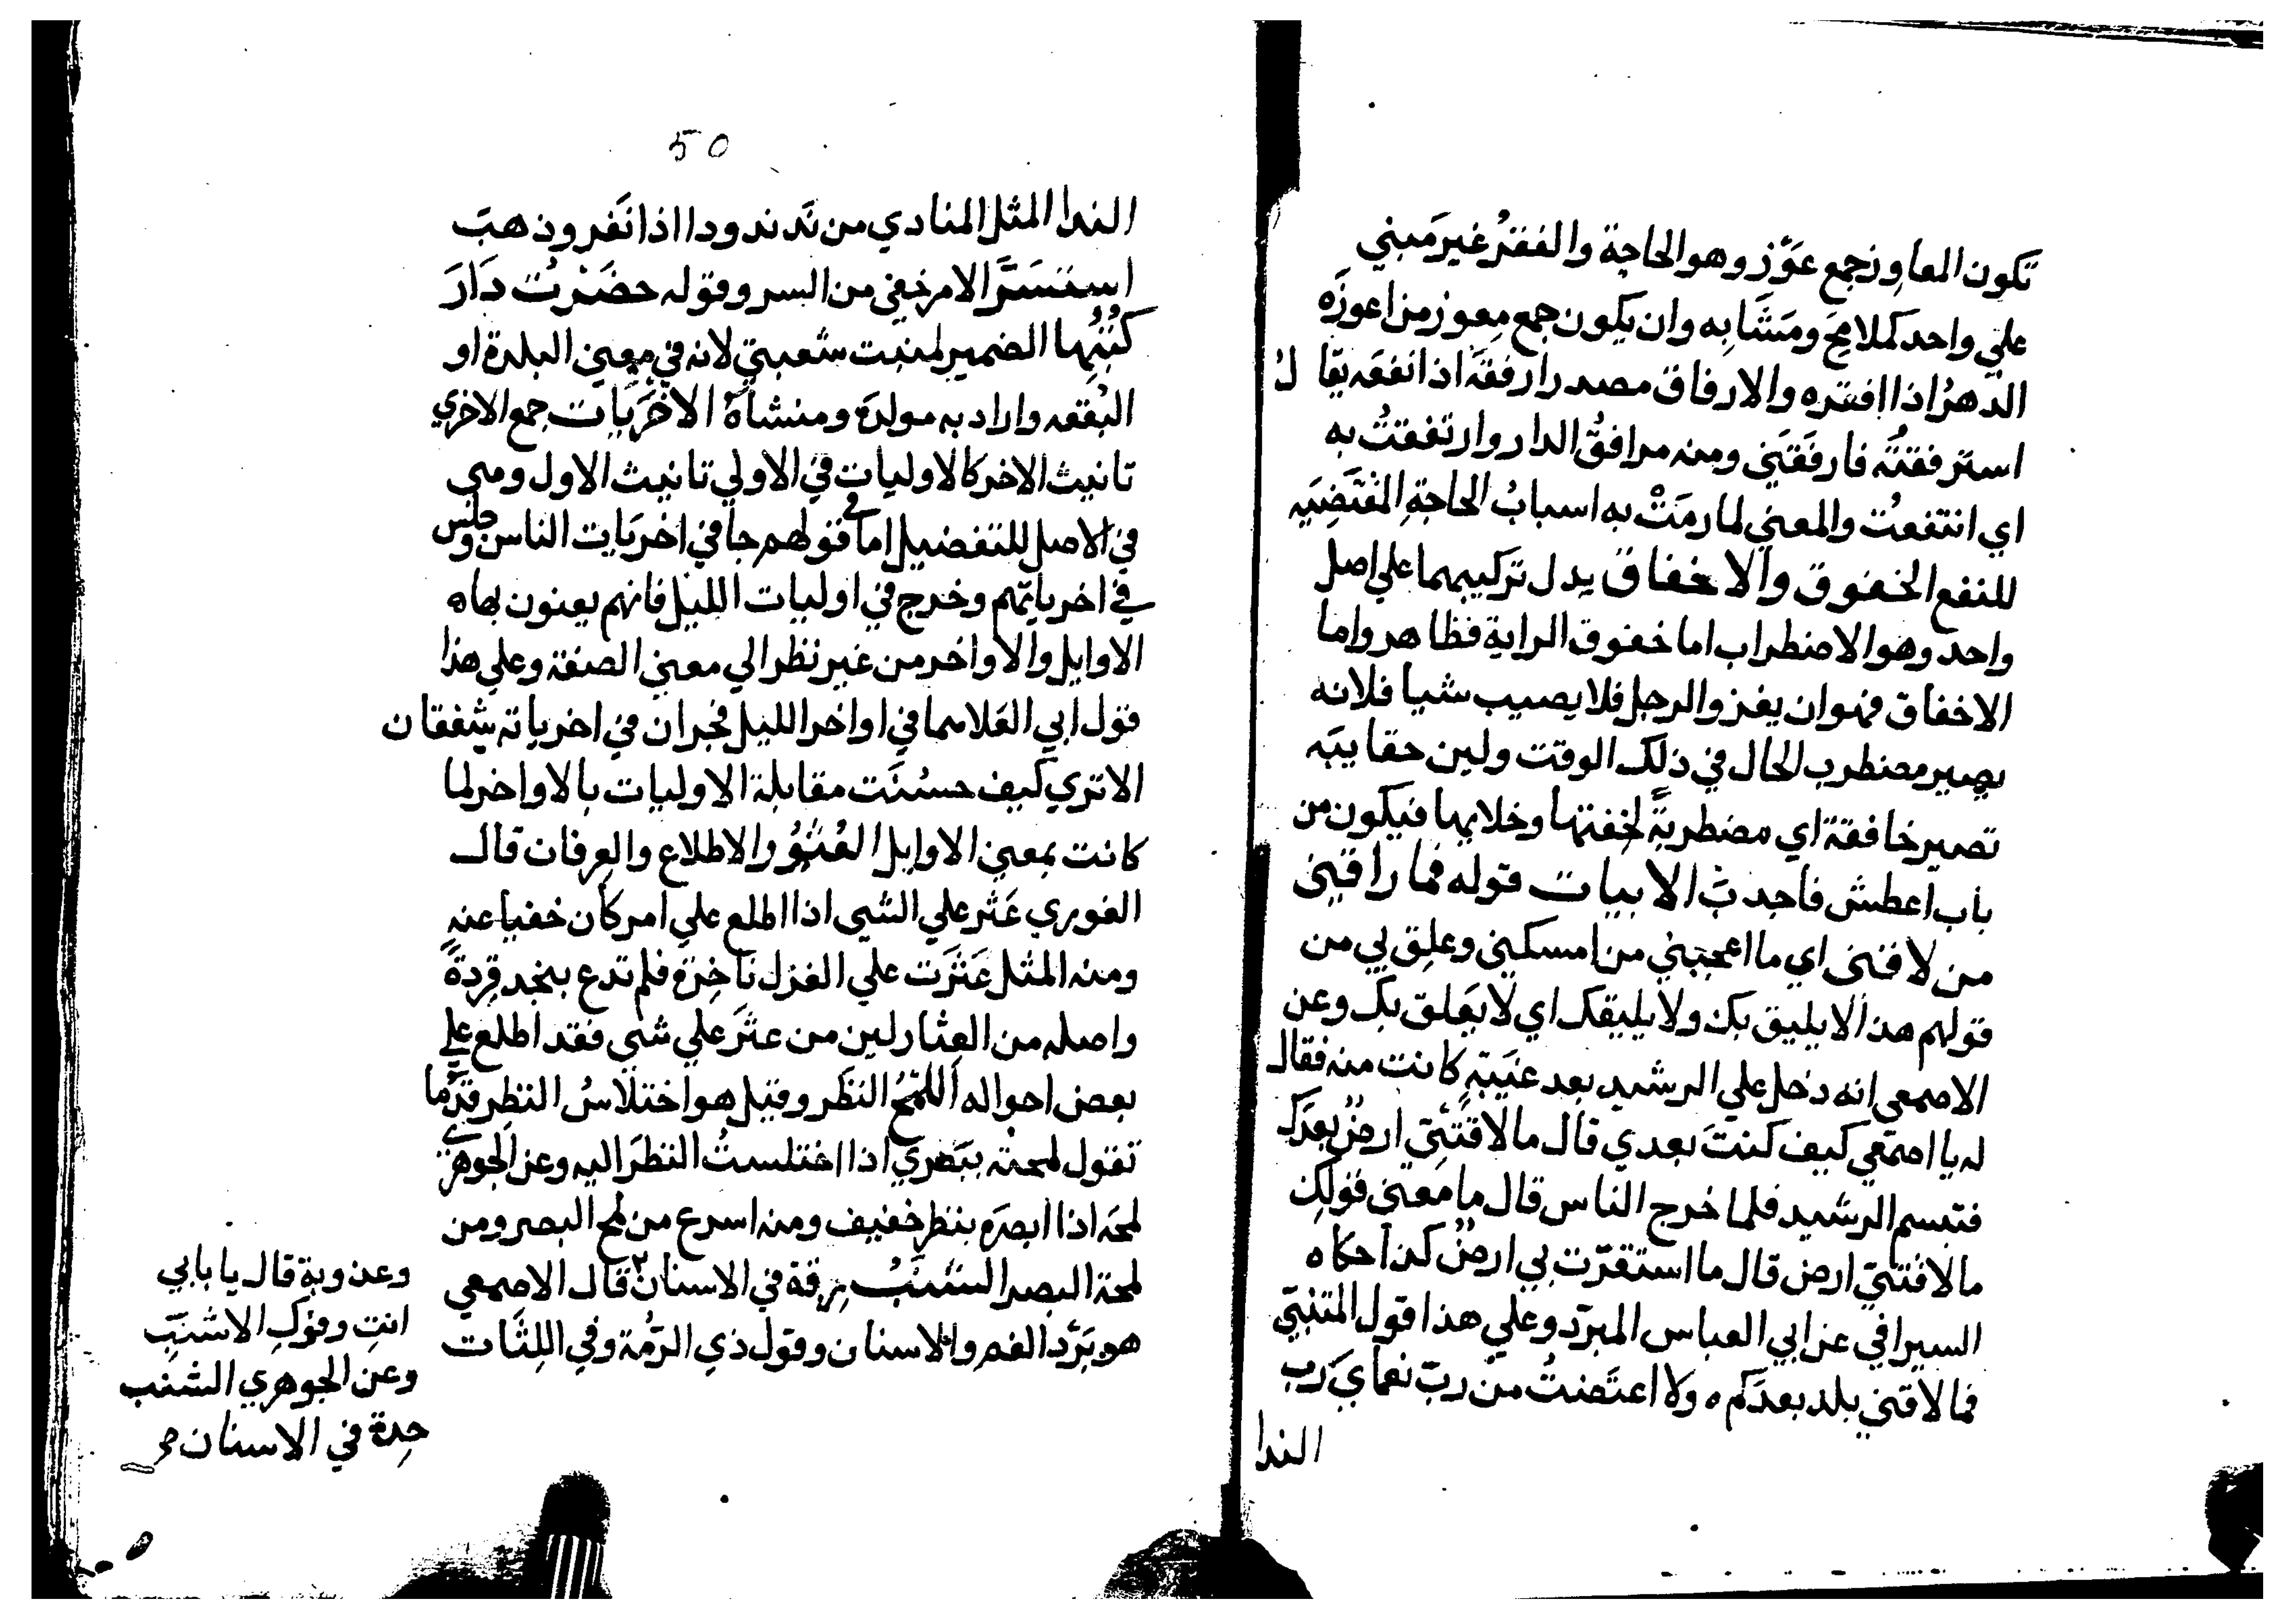 تكون المعاوز جمع عَوَز وهو الحاجة والفقرُ غير مَبني
علي واحد كملامحَ ومَشَابه وان يكون جمع مِعوز من اعوزَه
الدّهرُ اذا افقره والارفاق مصدر ارفقَهُ اذا انفعَه يقال
استرفقتُه فارفَقَني ومنه مرافقُ الدار وارتفقتُ به
اي انتفعتُ والمعني لما رمَتْ به اسبابُ الحاجةِ المُقتَضِيَه
للنفع الخفوق والاخفاق يدل تركيبهما علي اصل
واحد وهو الاضطراب اما خفوق الراية فظاهر واما
الاخفاق فهو ان يغزو الرجل فلا يصيب شيا فلانه
يصير مضطرب الحال في ذلك الوقت ولين حقايبَه
تصير خافقة اي مضطربةً لخفتها وخلايها فيكون من
باب اعطش فاجدبَ الابيات قوله فما راقني
من لاقنى اي ما اعجبني من امسكني وعلِق بي من
قولهم هذا لا يليق بك ولا يليقك اي لا يَعلق بك وعن
الاصمعي انه دخل علي الرشيد بعد غَيبَةٍ كانت منه فقال
له يا اصمَعي كيف كنتَ بعدي قال ما لاقَتْني ارضٌ بعدَك
فتبسم الرشيد فلما خرج الناس قال ما معنى قولك
ما لاقتني ارض قال ما استقرّت بي ارضٌ كذا حكاه
السيرافي عن ابي العباس المبرّد وعلي هذا قول المتنبّي
فما لاقني بلد بعدكم ه ولا اعتَضتُ من ربّ نعماي رَب
الندا
50
الندا المثل المنادي من نَدَّ ندودا اذا نَفَر وذهبَ
استَسَرَّ الامر خفي من السر وقوله حضَرْتُ دَارَ
كُتُبِها الضمير لمنبت شعبتي لانه في معني البلدة او
البُقعه واراد به مولدَهُ ومنشأهُ الاخْرَيات جمع الاخري
تانيث الاخر كالاوليات في الاولي تانيث الاول ومى
في الاصل للتفضيل اما قولهم جا في اخرَيات الناس وجلس
في اخرياتهم وخرج في اوليات الليل فانهم يعنون بها ه
الاوايل والاواخر من غير نظر الي معني الصفة وعلي هذا
قول ابي العَلا سما في اواخر الليل فجران في اخرياته شفقان
الا تري كيف حسُنَت مقابلة الاوليات بالاواخر لما
كانت بمعني الاوايل العُثُوُر والاطلاع والعِرفان قال
الغوري عَثر علي الشي اذا اطلع علي امر كان خفيا عنه
ومنه المثل عَثَرَت علي الغزل بآخِرَه فلم تدع بنجد قِردةً
واصله من العِثار لين من عثَر علي شي فقد اطلع علي
بعض احواله اللَّمْحُ النظَر وقيل هو اختلاسُ النظر قدّما
تقول لمحتُه ببَصَري اذا اختلستُ النظَرَ اليه وعن الجوهري
لمحَه اذا ابصرَه بنظرٍ خفيف ومنه اسرع من لمح البصر ومن
لمحة البصر الشَنَبُ رِقة في الاسنان قال الاصمعي
هو بَرْد الفم والاسنان وقول ذي الرّمُة وفي اللِثَات
وعذوبة قال يا بابي
انتِ وفوكِ الاشنَب
وعن الجوهري الشنب
حِدة في الاسنان